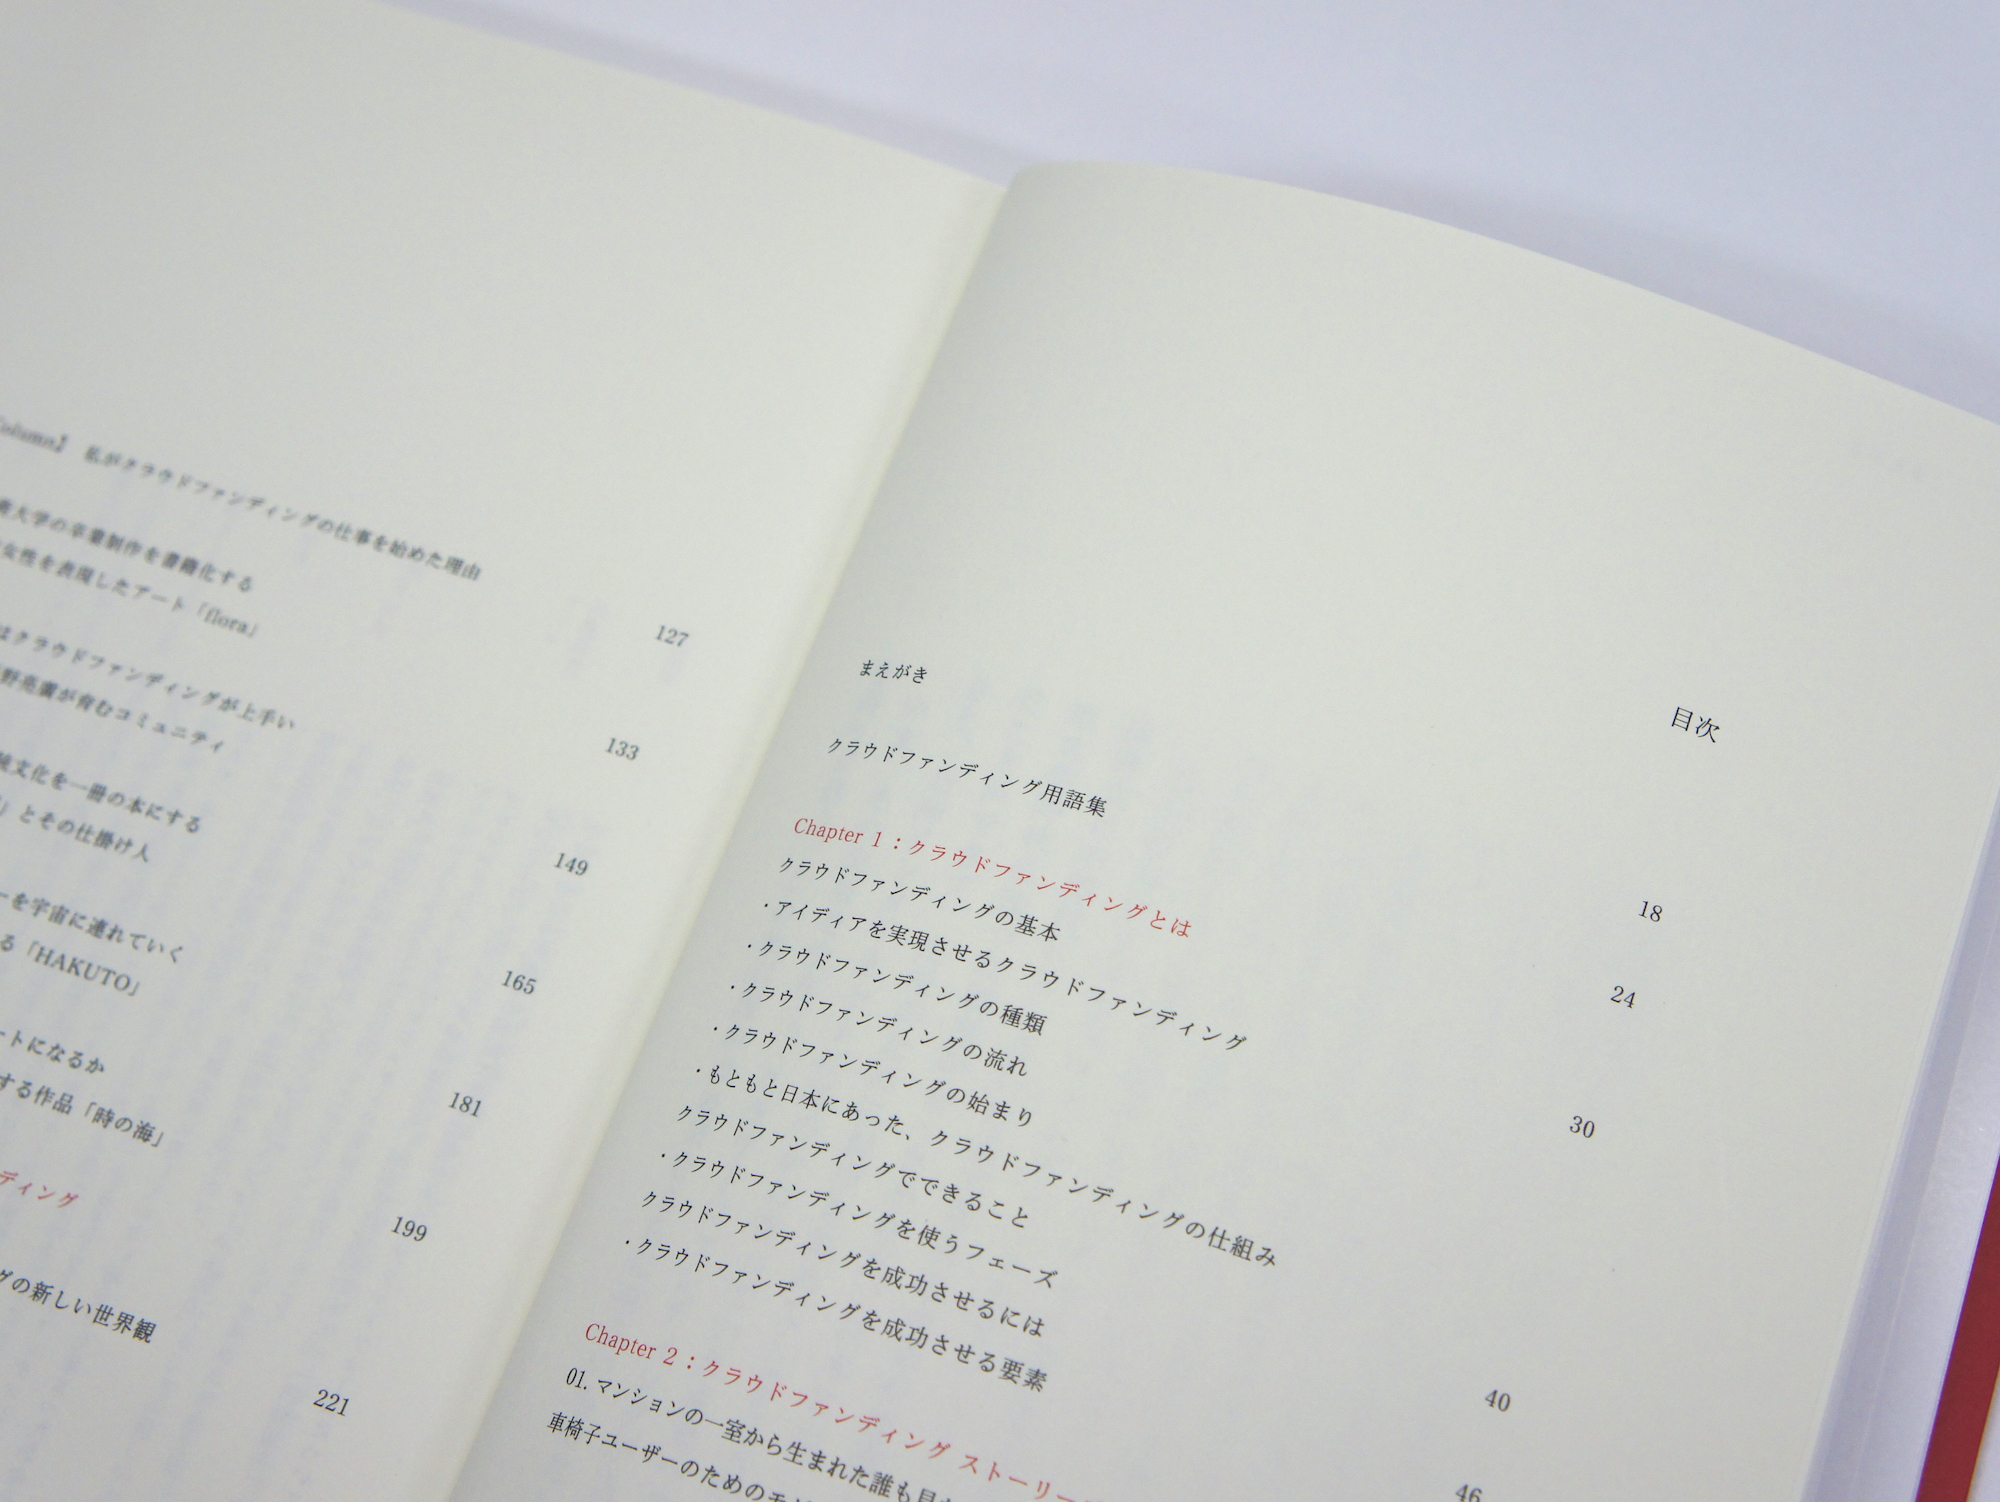 Column】 私がクラウドファンディングの仕事を始めた理由
127
大学の卒業制作を書籍化する
女性を表現したアート「flora」
133
はクラウドファンディングが上手い
野亮廣が育むコミュニティ
149
文化を一冊の本にする
」とその仕掛け人
165
ーを宇宙に連れていく
る「HAKUTO」
181
ートになるか
する作品「時の海」
199
ディング
グの新しい世界観
221
目次
まえがき
18
クラウドファンディング用語集
24
Chapter 1：クラウドファンディングとは
クラウドファンディングの基本
30
・アイディアを実現させるクラウドファンディング
・クラウドファンディングの種類
・クラウドファンディングの流れ
・クラウドファンディングの始まり
・もともと日本にあった、クラウドファンディングの仕組み
クラウドファンディングでできること
40
・クラウドファンディングを使うフェーズ
クラウドファンディングを成功させるには
46
・クラウドファンディングを成功させる要素
Chapter 2：クラウドファンディング ストーリー
01. マンションの一室から生まれた誰も見
車椅子ユーザーのためのモ